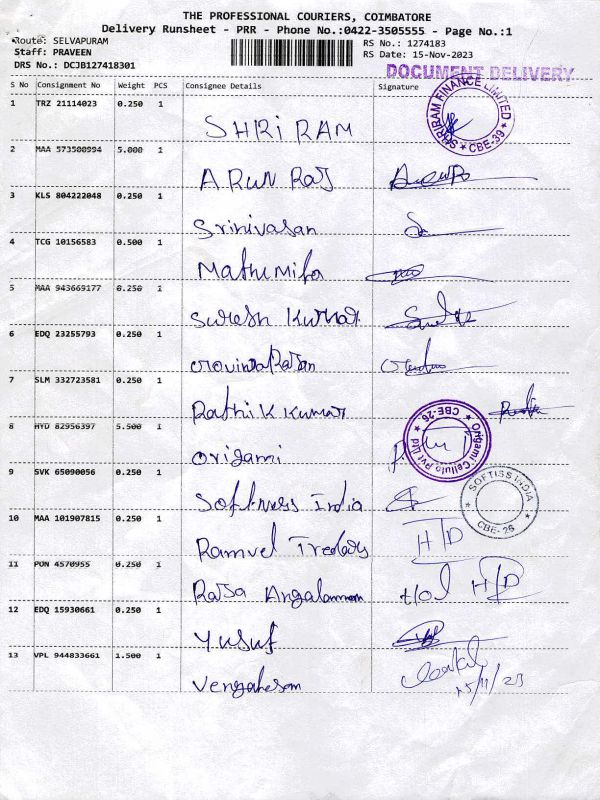 THE PROFESSIONAL COURIERS, COIMBATORE
Delivery Runsheet - PRR - Phone No.:0422-3505555 - Page No.:1
Route: SELVAPURAM
Staff: PRAVEEN
DRS No.: DCJB127418301
RS No.: 1274183
RS Date: 15-Nov-2023
DOCUMENT DELIVERY
S No Consignment No Weight PCS Consignee Details Signature
1 TRZ 21114023 0.250 1
SHRI RAM
SHRIRAM FINANCE LIMITED
* CBE-39 *
2 MAA 573500994 5.000 1
ARUN RAJ
3 KLS 804222048 0.250 1
Srinivasan
4 TCG 10156583 0.500 1
Mathumitha
5 MAA 943669177 0.250 1
Suresh Kumar
6 EDQ 23255793 0.250 1
Govindarasan
7 SLM 332723581 0.250 1
Rathik Kumar
8 HYD 82956397 5.500 1
Origami
Origami Cellulo Pvt Ltd
* CBE-26 *
9 SVK 65090056 0.250 1
Softness India
SOFTISS INDIA
* CBE-26 *
10 MAA 101907815 0.250 1
Ramvel Tredars H/D
11 PON 4570955 0.250 1
Rasa Angalamman H/D
12 EDQ 15930661 0.250 1
Yusuf
13 VPL 944833661 1.500 1
Vengahesam
15/11/23